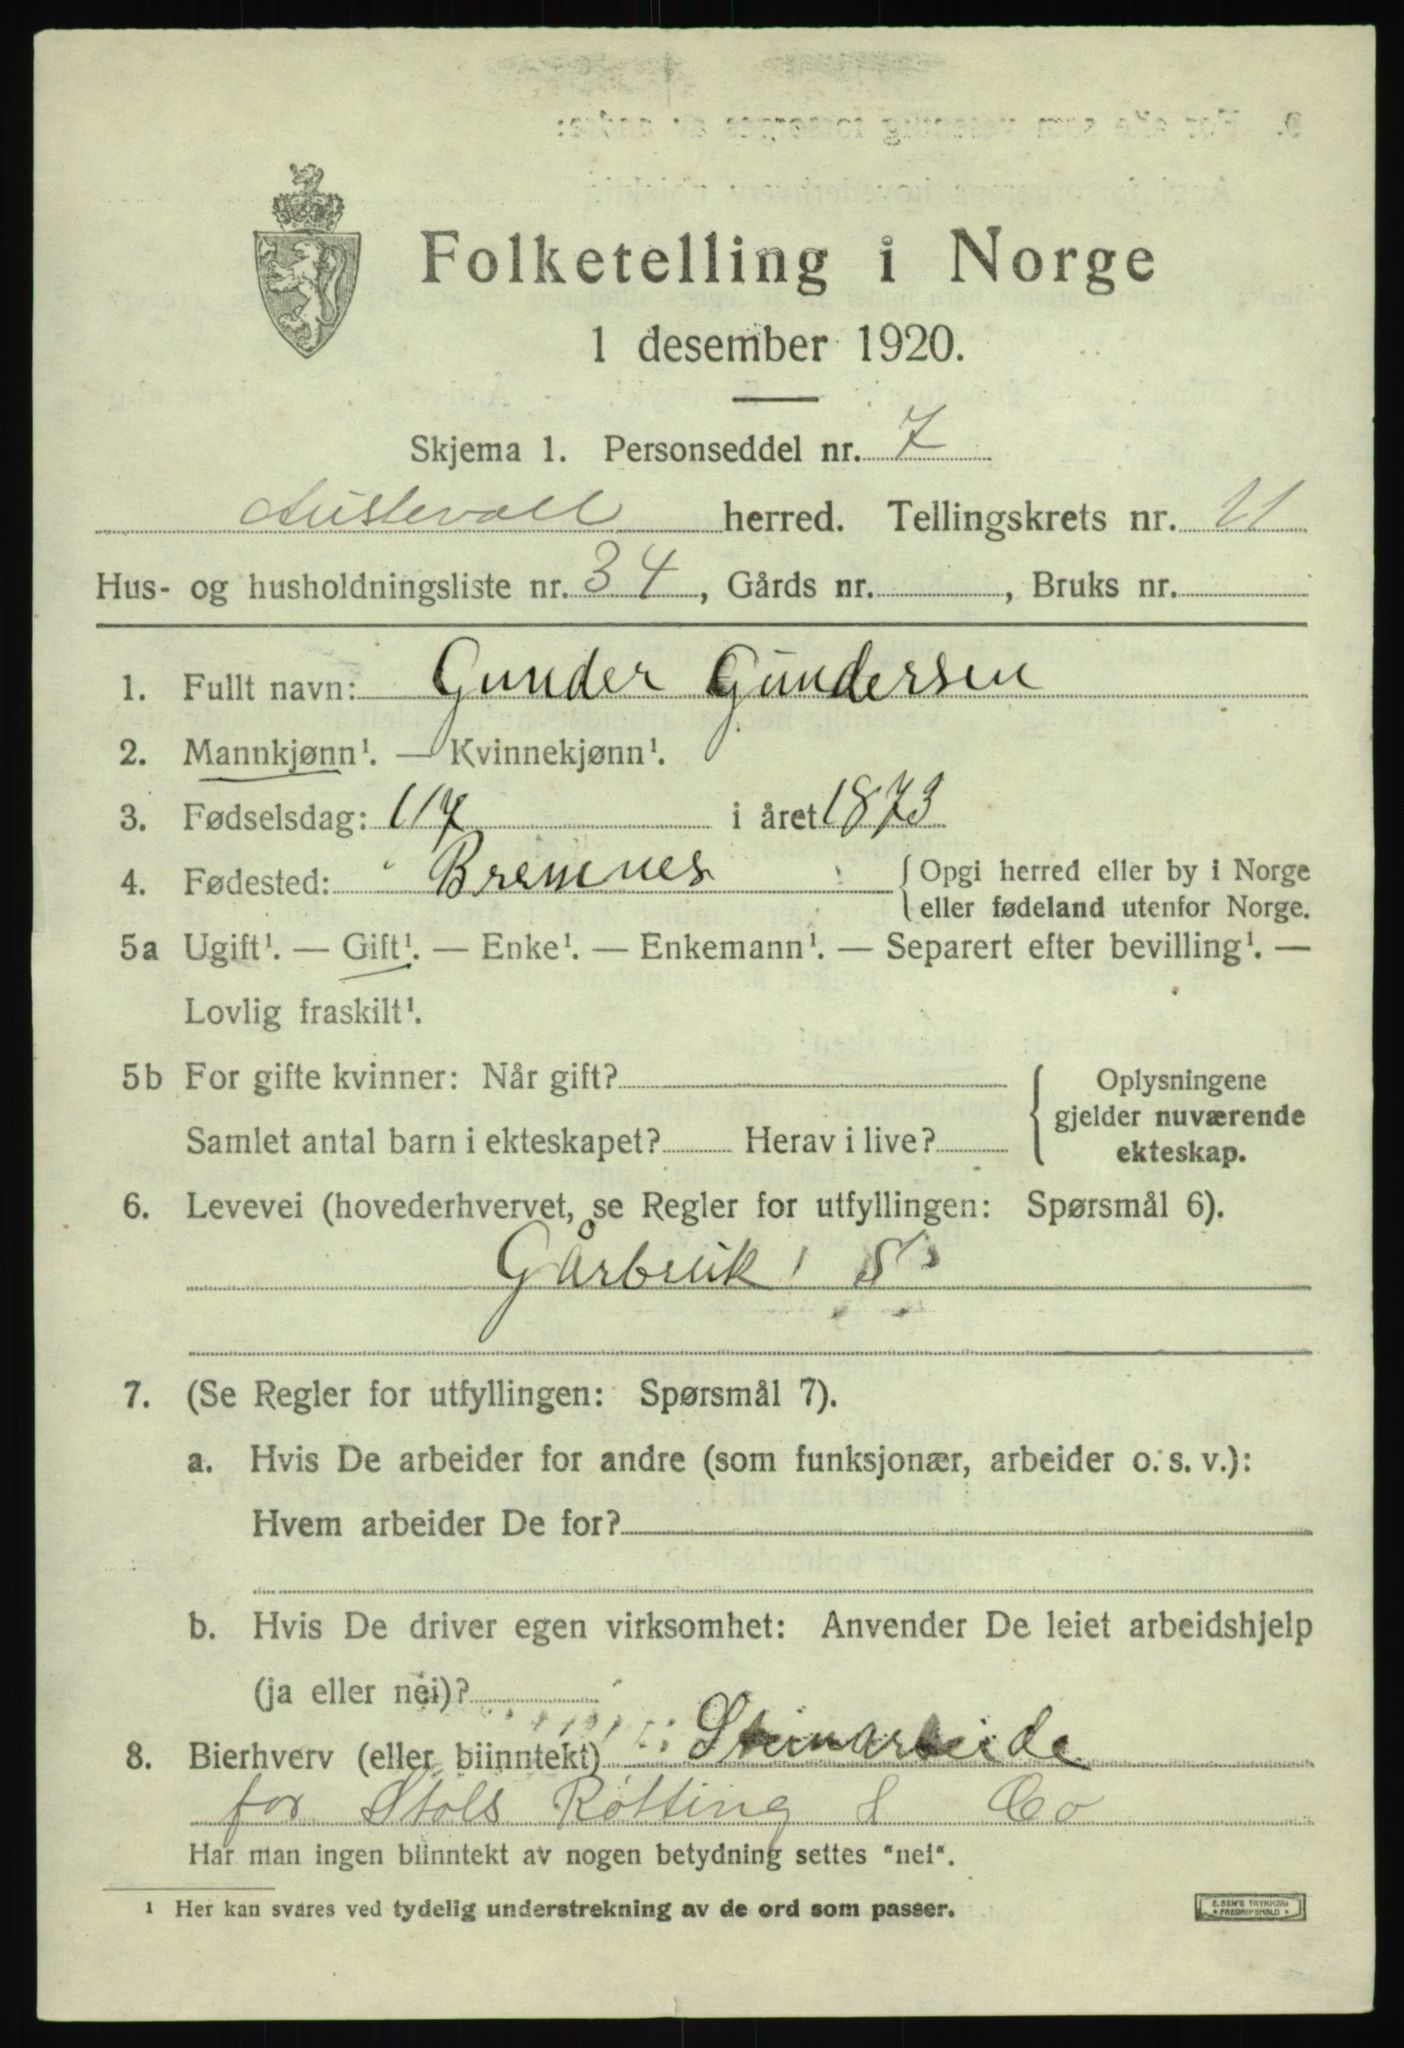 Folketelling i Norge
1 desember 1920.
Skjema 1. Personseddel nr. 7
Austevoll herred. Tellingskrets nr. 11
Hus- og husholdningsliste nr. 34, Gårds nr. , Bruks nr.
1. Fullt navn: Gunder Gundersen
2. Mannkjønn¹. — Kvinnekjønn¹.
3. Fødselsdag: 11/7 i året 1873
4. Fødested: Bremnes { Opgi herred eller by i Norge
eller fødeland utenfor Norge.
5a Ugift¹. — Gift¹. — Enke¹. — Enkemann¹. — Separert efter bevilling¹. —
Lovlig fraskilt¹.
5b For gifte kvinner: Når gift? { Oplysningene
gjelder nuværende
Samlet antal barn i ekteskapet? Herav i live?
ekteskap.
6. Levevei (hovederhvervet, se Regler for utfyllingen: Spørsmål 6).
Gårbruk S
7. (Se Regler for utfyllingen: Spørsmål 7).
a. Hvis De arbeider for andre (som funksjonær, arbeider o. s. v.):
Hvem arbeider De for?
b. Hvis De driver egen virksomhet: Anvender De leiet arbeidshjelp
(ja eller nei)?
8. Bierhverv (eller biinntekt) Steinarbeide
for Stols Røtting & Co
Har man ingen biinntekt av nogen betydning settes "nei".
¹ Her kan svares ved tydelig understrekning av de ord som passer.